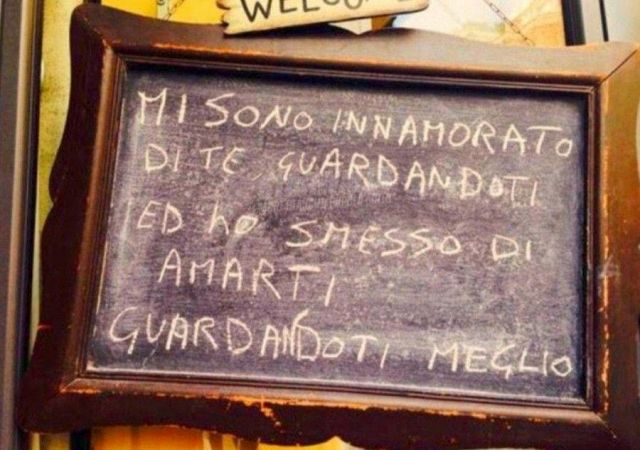 WELCOME
MI SONO INNAMORATO
DI TE, GUARDANDOTI
ED HO SMESSO DI
AMARTI
GUARDANDOTI MEGLIO